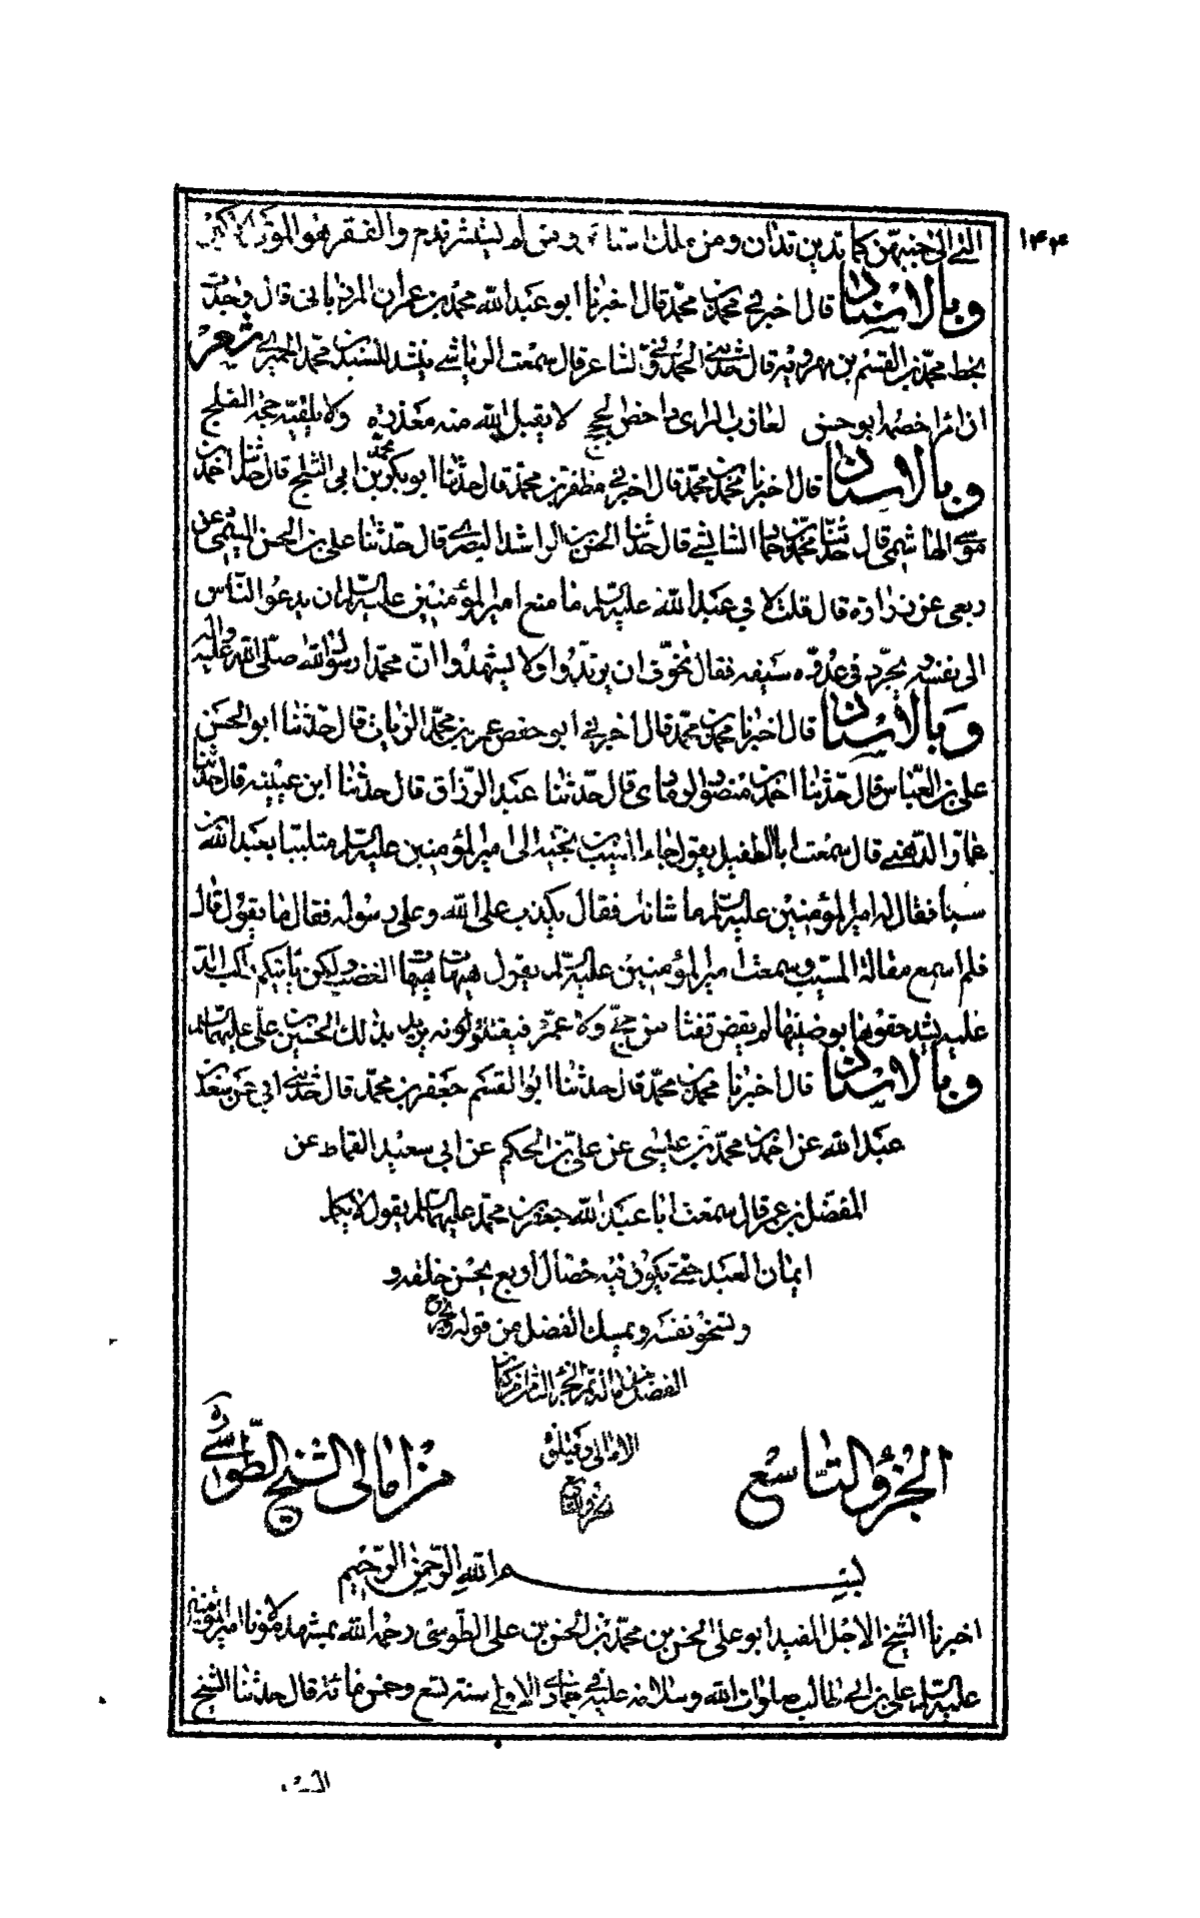 ١٤٤
التي الى جنبه من كما تدين تدان ومن ملك استاثر ومن لم يستشر ندم والفقر هو الموت الاكبر
وبالاسناد قال اخبرني محمد بن محمد قال اخبرنا ابو عبد الله محمد بن عمران المرزباني قال وجدت
بخط محمد بن القسم بن مهرويه قال حدثني الحمدوني الشاعر قال سمعت الرياشي ينشد للسيد بن محمد الحميري شعر
ان امرا خصمه ابو حسن لعازب الراي داحض الحجج لا يقبل الله منه معذرة ولا يلقيه حجة الفلج
وبالاسناد قال اخبرنا محمد بن محمد قال اخبرني مظفر بن محمد قال حدثنا ابو بكر محمد بن ابي الثلج قال حدثنا احمد بن
موسى الهاشمي قال حدثنا محمد بن حماد الشاشي قال حدثنا الحسن بن الراشد البصري قال حدثنا علي بن الحسن الميثمي عن
ربعي عن زرارة قال قلت لابي عبد الله عليه السلام ما منع امير المؤمنين عليه السلام ان يدعو الناس
الى نفسه ويجرد في عدوه سيفه فقال تخوف ان يرتدوا ولا يشهدوا ان محمدا رسول الله صلى الله عليه واله
وبالاسناد قال اخبرنا محمد بن محمد قال اخبرني ابو حفص عمر بن محمد الزيات قال حدثنا ابو الحسن
علي بن العباس قال حدثنا احمد بن منصور الرمادي قال حدثنا عبد الرزاق قال حدثنا ابن عيينه قال حدثنا
عمار الدهني قال سمعت ابا الطفيل يقول جاء المسيب بن نجبه الى امير المؤمنين عليه السلام متلببا بعبد الله بن
سبا فقال له امير المؤمنين عليه السلام ما شانك فقال يكذب على الله وعلى رسوله فقال ما يقول قال
فلم اسمع مقالة المسيب وسمعت امير المؤمنين عليه السلام يقول هيهات هيهات الغضب ولكن ياتيكم راكب الذ
علبه يشد حقوها بوضينها لم يقض تفثا من حج ولا عمرة فيقتلوه يريد بذلك الحسين بن علي عليهما السلام
وبالاسناد قال اخبرنا محمد بن محمد قال حدثنا ابو القسم جعفر بن محمد قال حدثني ابي عن سعد بن
عبد الله عن احمد بن محمد بن عيسى عن علي بن الحكم عن ابي سعيد القماط عن
المفضل بن عمر قال سمعت ابا عبد الله جعفر بن محمد عليهما السلام يقول لا يكمل
ايمان العبد حتى يكون فيه خصال اربع يحسن خلقه و
وتسخو نفسه ويمسك الفضل من قوله ويخرج
الفضل من ماله تم الجزء الثامن من كتاب
الامالي ويتلوه
الجزء التاسع
الجزؤ التاسع من امالي الشيخ الطوسي ره
بسم الله الرحمن الرحيم
اخبرنا الشيخ الاجل المفيد ابو علي الحسن بن محمد بن الحسن بن علي الطوسي رحمه الله بمشهد مولانا امير المؤمنين
عليه السلام علي بن ابي طالب صلوات الله وسلامه عليه في جمادى الاولى سنة تسع وخمس مائة قال حدثنا الشيخ